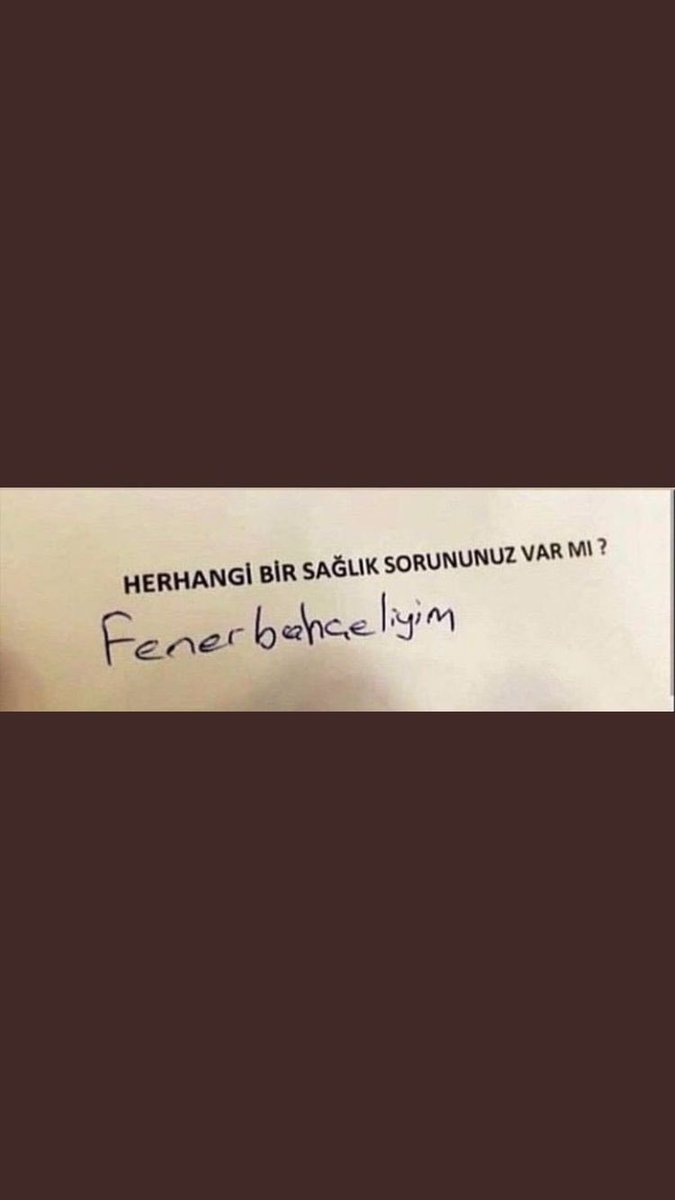 HERHANGİ BİR SAĞLIK SORUNUNUZ VAR MI ?
Fenerbahçeliyim